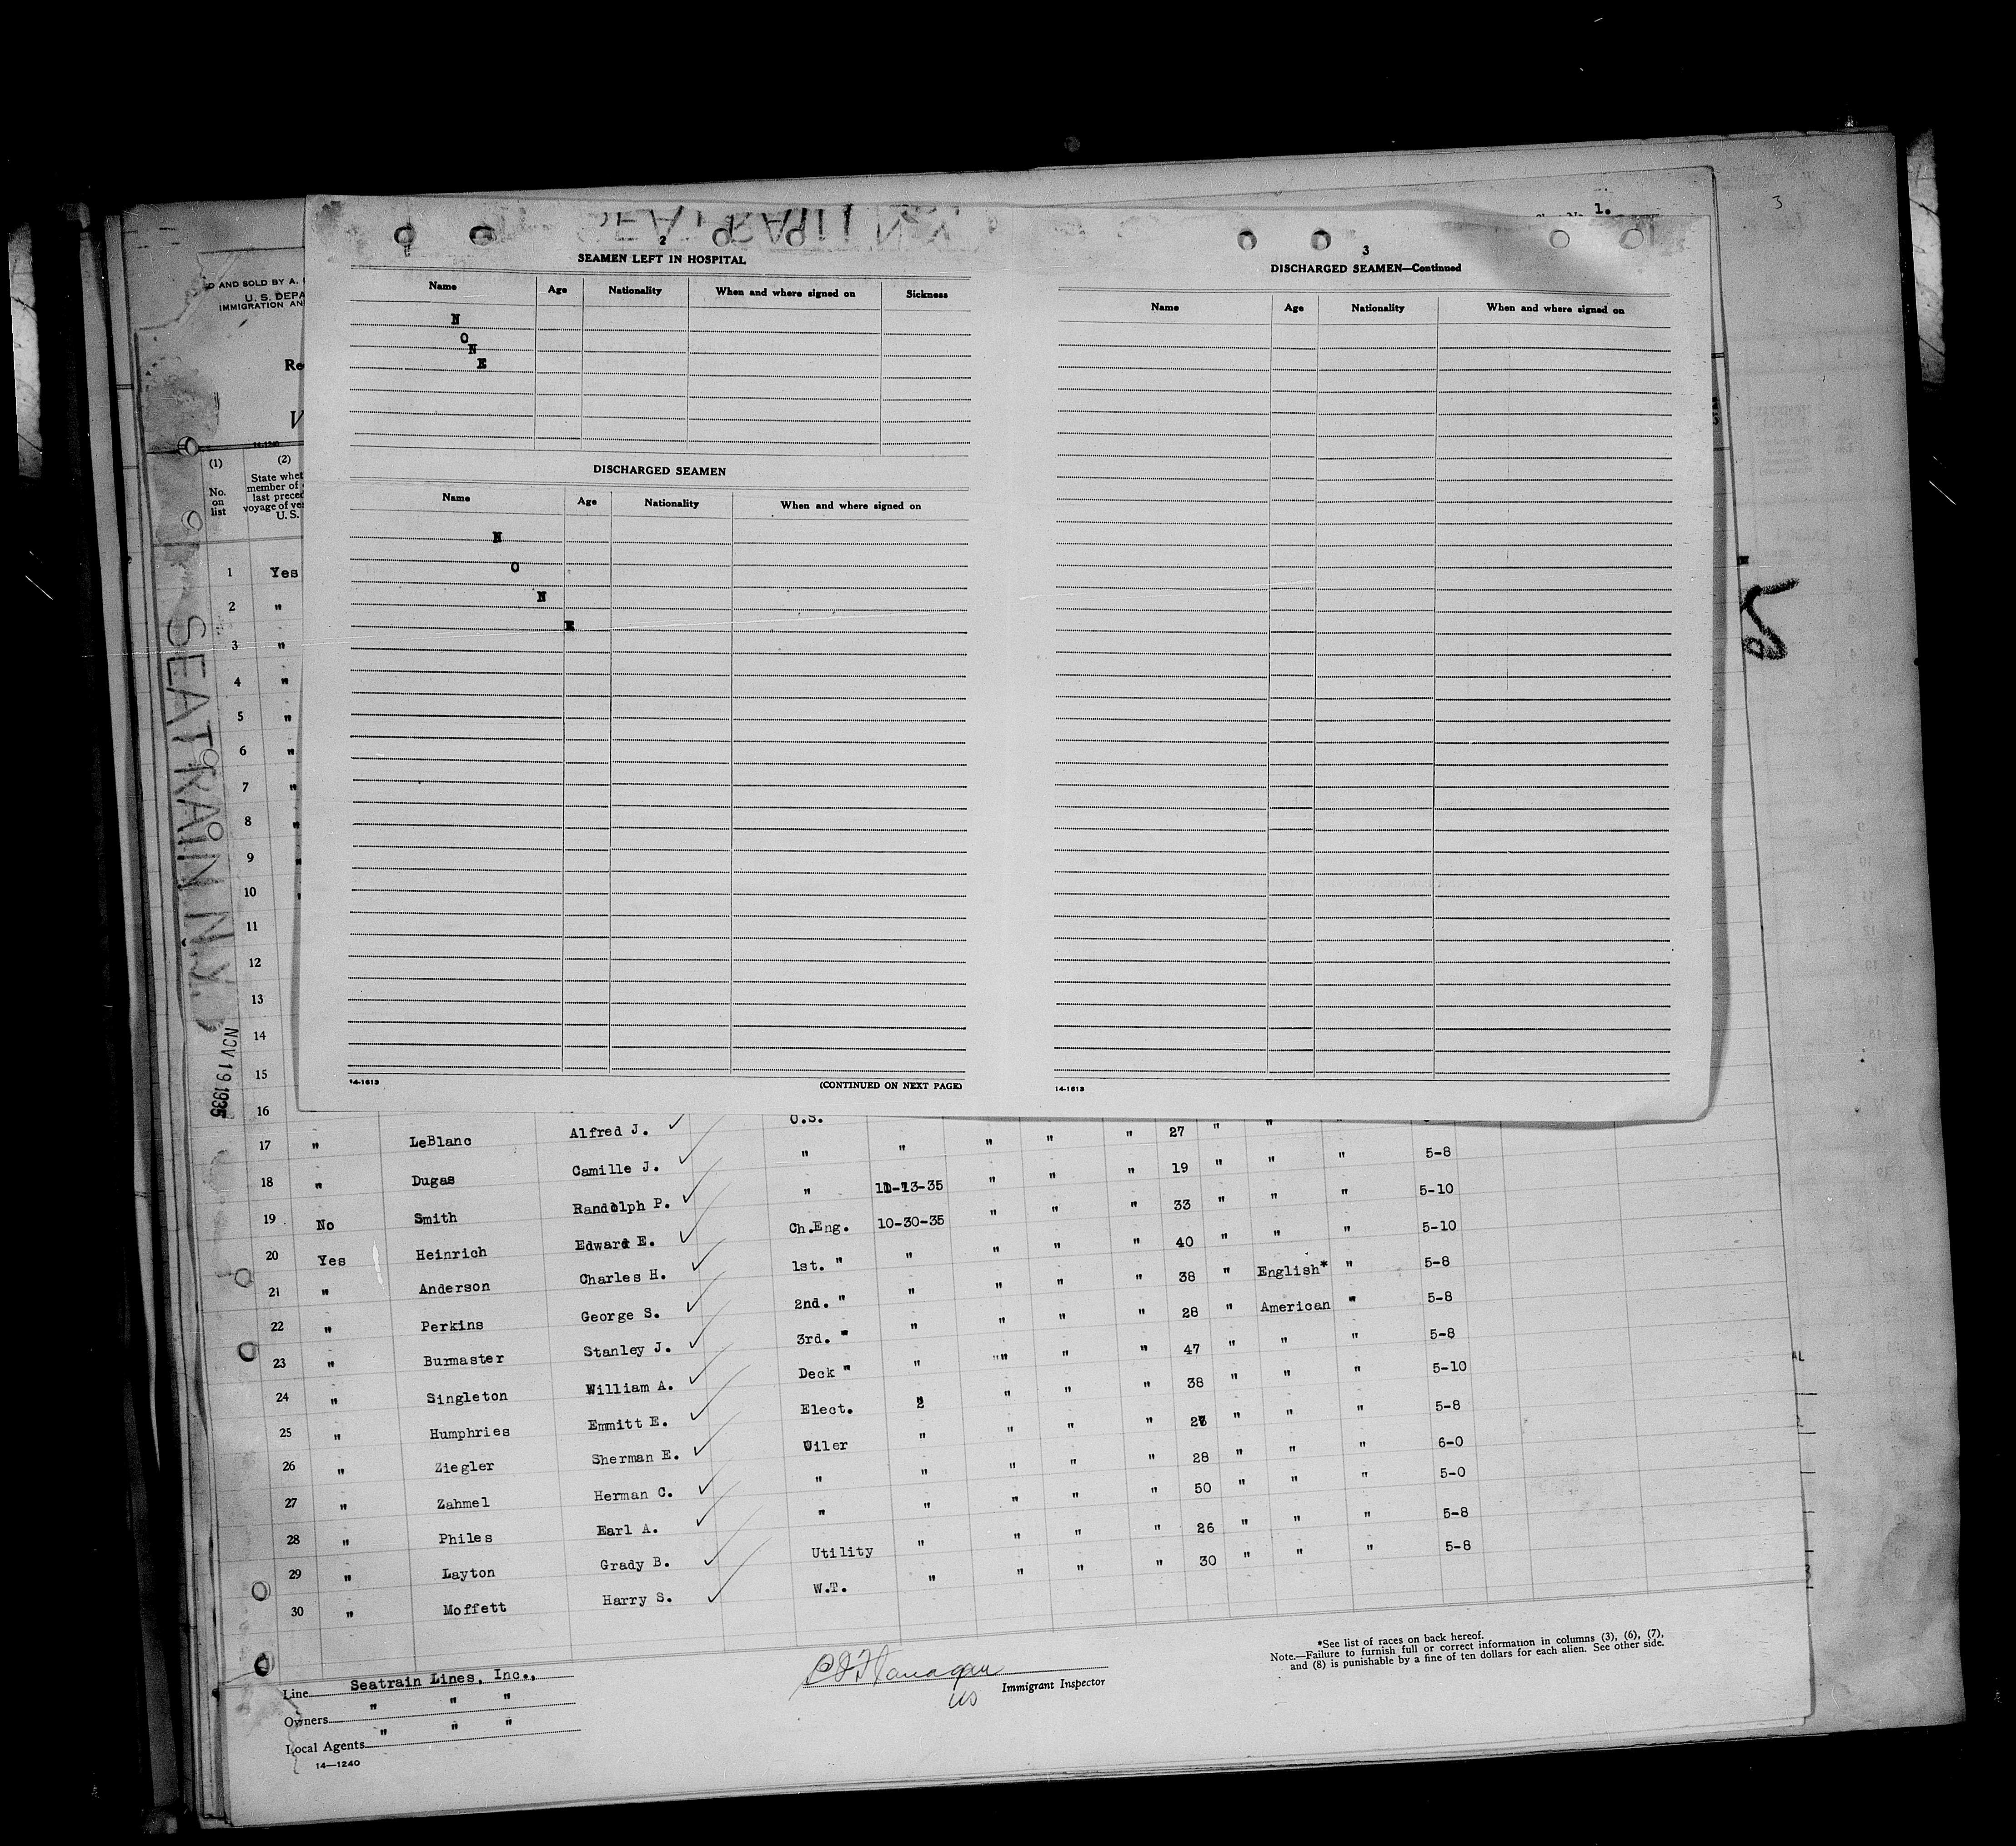 SEATRAIN N.Y.
NOV 19 1935
1.
3
D AND SOLD BY A.
U. S. DEPA
IMMIGRATION AN
14-1240
(1) (2)
No. on list
State whet
member of
last preced
voyage of ve
U. S.
1 Yes
2 "
3 "
4 "
5 "
6 "
7 "
8 "
9 "
10 "
11
12
13
14
15
16
2
SEAMEN LEFT IN HOSPITAL
Name Age Nationality When and where signed on Sickness
N
O
N
E
DISCHARGED SEAMEN
Name Age Nationality When and where signed on
N
O
N
E
14-1613 (CONTINUED ON NEXT PAGE)
3
DISCHARGED SEAMEN—Continued
Name Age Nationality When and where signed on
14-1613
17 " LeBlanc Alfred J. O.S. " " " " 27 " " "
18 " Dugas Camille J. " " " " 19 " " " 5-8
19 No Smith Randolph P. " -35 " " " 33 " " " 5-10
20 Yes Heinrich Edward E. Ch.Eng. 10-30-35 " " " 40 " " " 5-10
21 " Anderson Charles H. 1st. " " " " " 38 " English* " 5-8
22 " Perkins George S. 2nd. " " " " " 28 " American " 5-8
23 " Burmaster Stanley J. 3rd. " " " " " 47 " " " 5-8
24 " Singleton William A. Deck " " " " " 38 " " " 5-10
25 " Humphries Emmitt E. Elect. " " " " " " " 5-8
26 " Ziegler Sherman E. " " " " 28 " " " 6-0
27 " Zahmel Herman C. " " " " " 50 " " " 5-0
28 " Philes Earl A. " " " " " 26 " " " 5-8
29 " Layton Grady B. Utility " " " " 30 " " " 5-8
30 " Moffett Harry S. W.T. "
Line Seatrain Lines, Inc.,
Owners " " "
Local Agents " " "
14—1240
Immigrant Inspector
*See list of races on back hereof.
Note.—Failure to furnish full or correct information in columns (3), (6), (7),
and (8) is punishable by a fine of ten dollars for each alien. See other side.